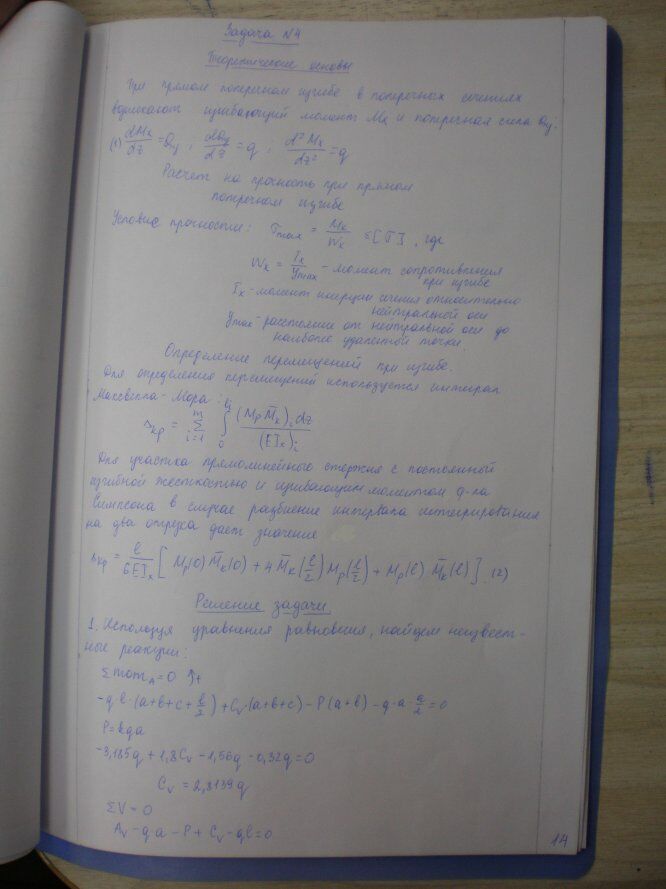 Задача N4
Теоретические основы
При прямом поперечном изгибе в поперечных сечениях
возникают изгибающий момент Mx и поперечная сила Qy.
(1) dMx/dz = Qy ; dQy/dz = q ; d²Mx/dz² = q
Расчет на прочность при прямом
поперечном изгибе
Условие прочности: σmax = Mx/Wx ≤ [σ], где
Wx = Ix/ymax - момент сопротивления
при изгибе
Ix - момент инерции сечения относительно
нейтральной оси
ymax - расстояние от нейтральной оси до
наиболее удаленной точки
Определение перемещений при изгибе.
Для определения перемещений используется интеграл
Максвелла - Мора:
Δкр = Σ(i=1..m) ∫(0..li) (Mp M̄k)i dz / (EIx)i
Для участка прямолинейного стержня с постоянной
изгибной жесткостью и изгибающим моментом ф-ла
Симпсона в случае разбиение интервала интегрирования
на два отрезка дает значение
Δкр = l/6EIx [Mp(0) M̄k(0) + 4 M̄k(l/2) Mp(l/2) + Mp(l) M̄k(l)] (2)
Решение задачи.
1. Используя уравнения равновесия, найдем неизвест-
ные реакции:
Σ momA = 0
-q·b·(a+b+c+b/2) + Cv·(a+b+c) - P(a+b) - q·a·a/2 = 0
P = kqa
-3,185q + 1,8Cv - 1,56q - 0,32q = 0
Cv = 2,8139q
ΣV = 0
Av - qa - P + Cv - qb = 0
14